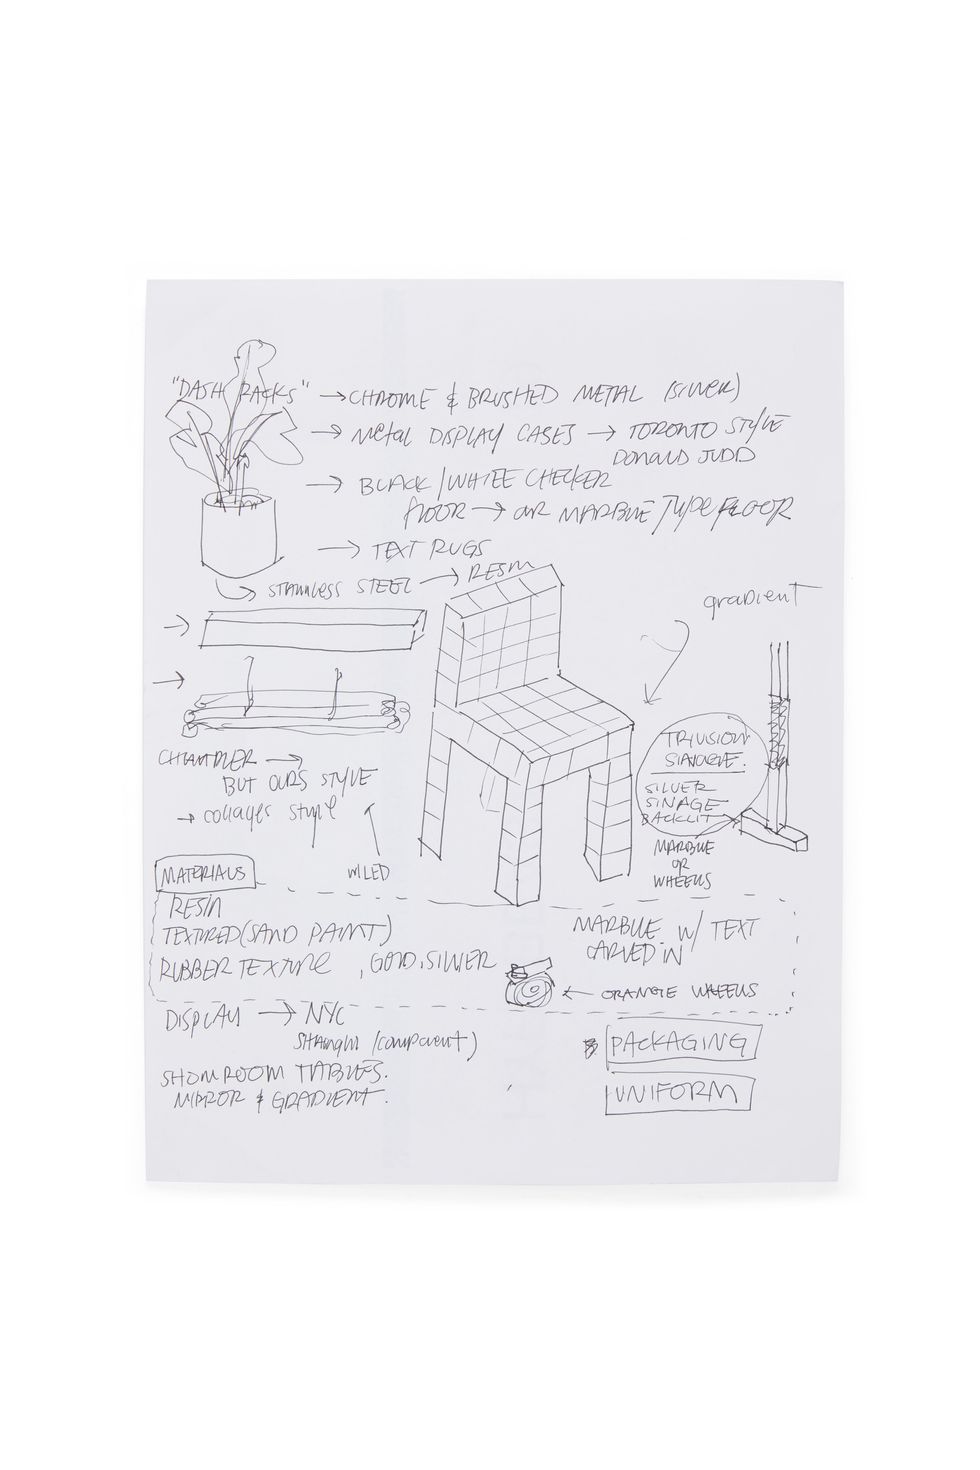 "DASH RACKS" → CHROME & BRUSHED METAL (SILVER)
→ METAL DISPLAY CASES → TORONTO STYLE
DONALD JUDD
→ BLACK/WHITE CHECKER
FLOOR → OUR MARBLE TYPE FLOOR
→ TEXT RUGS
STAINLESS STEEL → RESIN
gradient
→
→
BUT OURS STYLE
→ collages style
w/LED
SINAGE
BACKLIT
SILVER
MARBLE
OR
WHEELS
MATERIALS
RESIN
TEXTURED (SAND PAINT)
RUBBER TEXTURE, GOLD, SILVER
MARBLE W/ TEXT
CARVED IN
← ORANGE WHEELS
DISPLAY → NYC
(component)
SHOWROOM TABLES.
MIRROR & GRADIENT.
PACKAGING
UNIFORM